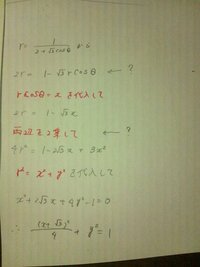 r = 1/(2+√3cosθ) より
2r = 1 - √3 r cosθ ← ?
r cosθ = x を代入して
2r = 1 - √3x
両辺を2乗して ← ?
4r² = 1 - 2√3x + 3x²
r² = x² + y² を代入して
x² + 2√3x + 4y² - 1 = 0
∴ (x+√3)²/4 + y² = 1